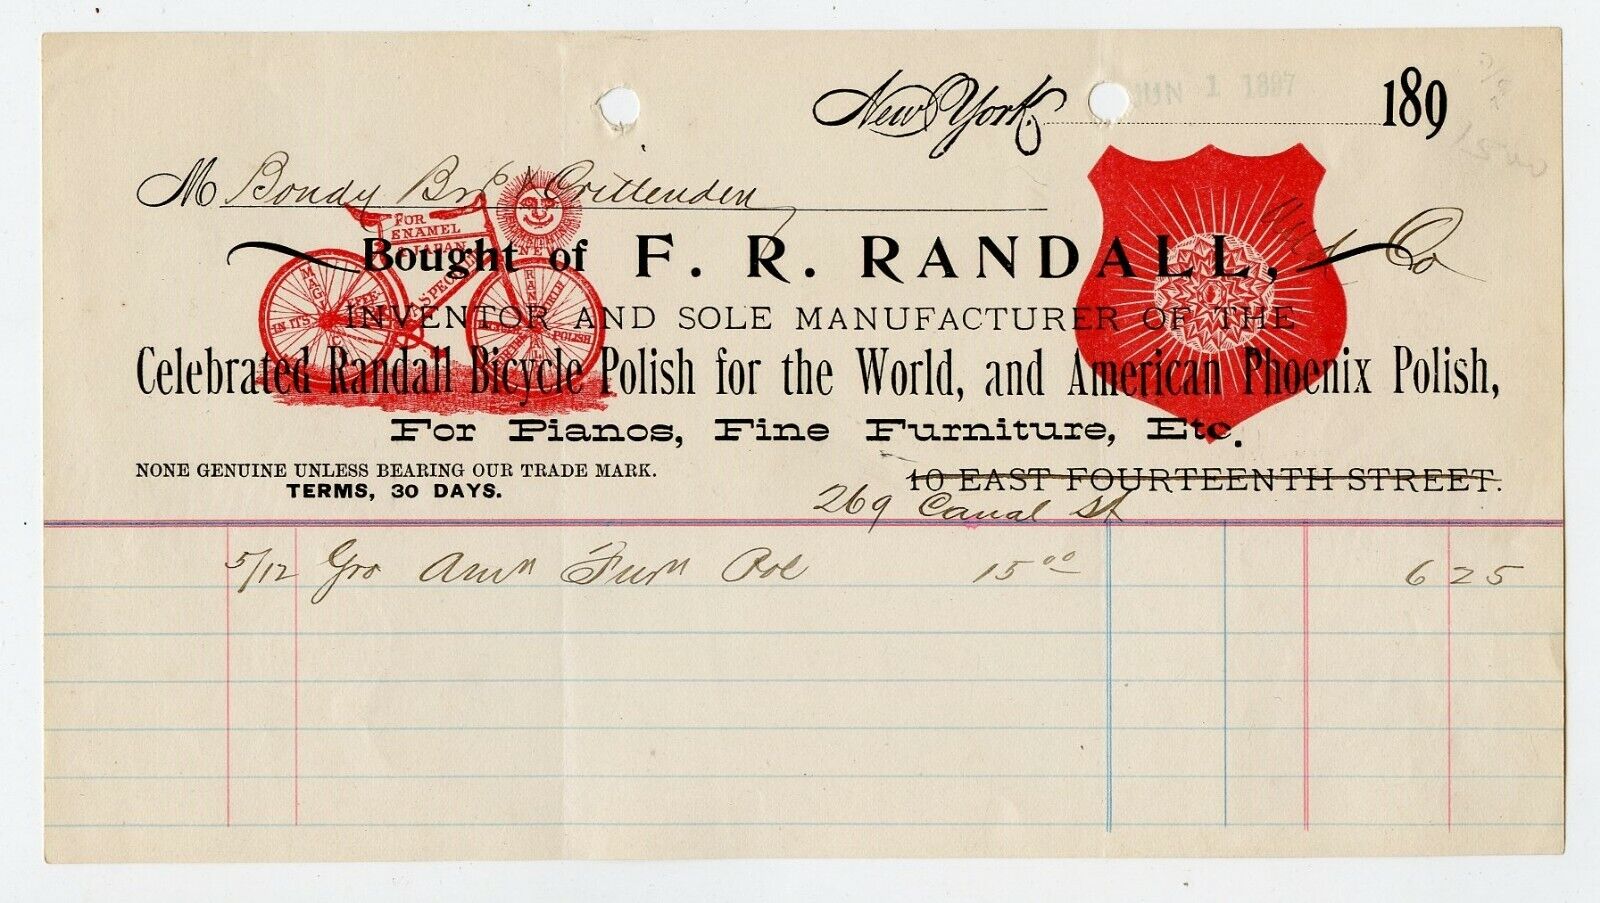 New York, JUN 1 1897 189
M Bondy Bro & Crittenden
Co
FOR
ENAMEL
& JAPAN
Bought of F. R. RANDALL,
INVENTOR AND SOLE MANUFACTURER OF THE
Celebrated Randall Bicycle Polish for the World, and American Phoenix Polish,
For Pianos, Fine Furniture, Etc.
NONE GENUINE UNLESS BEARING OUR TRADE MARK. 10 EAST FOURTEENTH STREET.
TERMS, 30 DAYS. 269 Canal St
5/12 Gro Amn Furn Pol 15 00 6 25